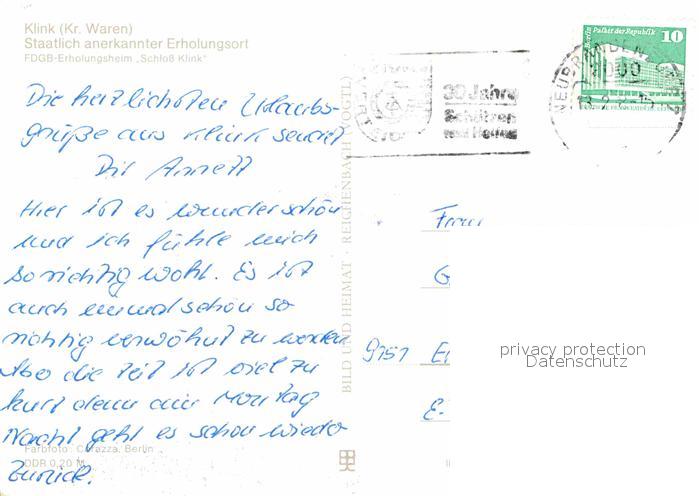 Klink (Kr. Waren)
Staatlich anerkannter Erholungsort
FDGB-Erholungsheim „Schloß Klink"
Die herzlichsten Urlaubs-
grüße aus Klink sendet
Dir Annett
Hier ist es wunderschön
und ich fühle mich
so richtig wohl. Es ist
auch einmal schön so
richtig verwöhnt zu werden
Also die Zeit ist viel zu
kurz denn am Montag
Nacht geht es schon wieder
zurück.
Farbfoto: Carazza, Berlin
DDR 0,20 M
BILD UND HEIMAT · REICHENBACH (VOGTL)
30 Jahre
Schützen
und Helfen
NEUBRANDENBURG
2000
Berlin, Palast der Republik
10
DDR
Frau
G
9151 E
E.
privacy protection
Datenschutz